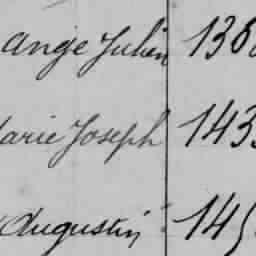 ange Julien 136
arie Joseph 143
Augustin 145